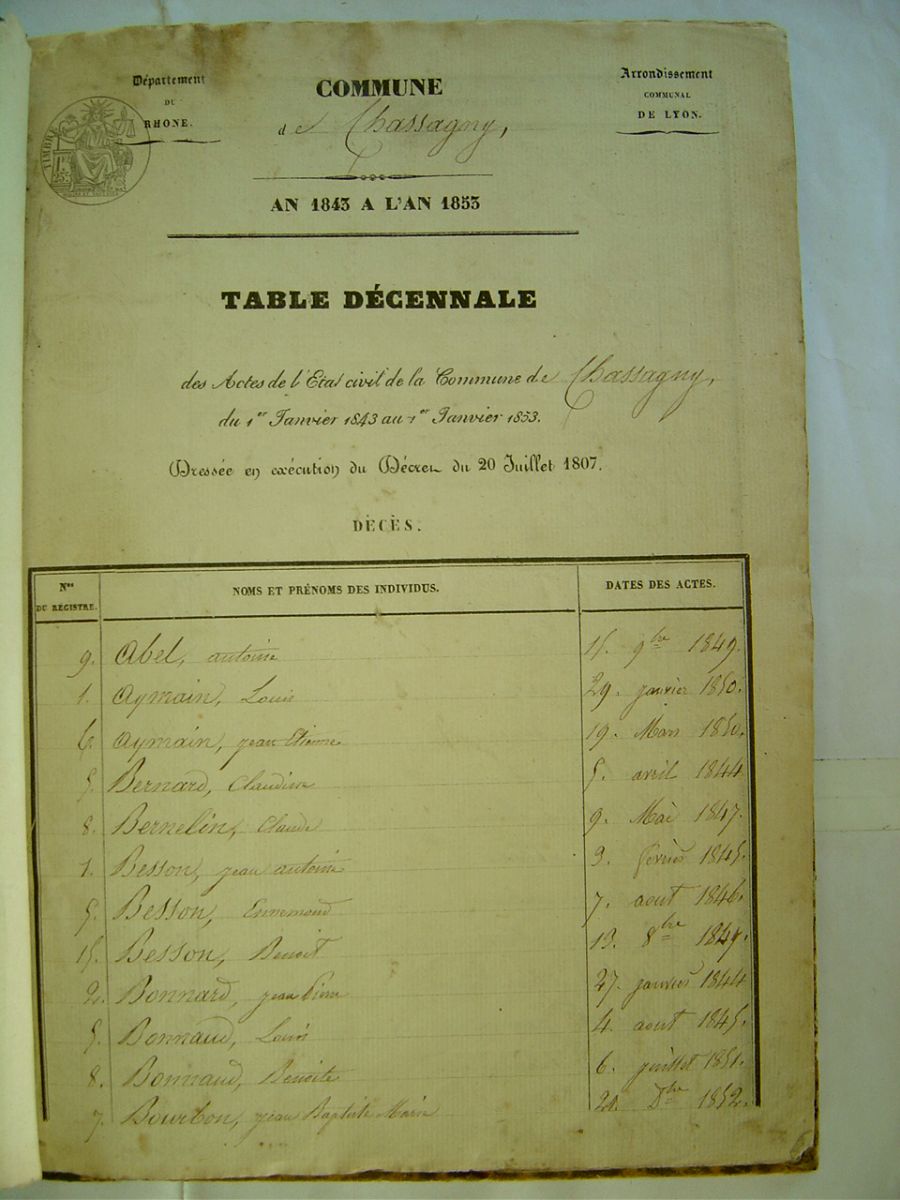 Département
DU
RHONE.
COMMUNE
de Chassagny,
Arrondissement
COMMUNAL
DE LYON.
TIMBRE
AN 1843 A L'AN 1853
TABLE DÉCENNALE
des Actes de l'Etat civil de la Commune de Chassagny,
du 1er Janvier 1843 au 1er Janvier 1853.
Dressée en exécution du Décret du 20 Juillet 1807.
DÉCÈS.
Nos DU REGISTRE. NOMS ET PRÉNOMS DES INDIVIDUS. DATES DES ACTES.
9. Abel, antoine 15. 9bre 1849.
1. Aymain, Louis 29. janvier 1850.
6. Aymain, jean Etienne 19. Mars 1850.
5. Bernard, Claudine 5. avril 1844.
8. Bernelin, Claude 9. Mai 1847.
1. Besson, jean antoine 3. février 1845.
5. Besson, Ennemond 7. aout 1846.
15. Besson, Benoit 13. 8bre
2. Bonnard, jean Pierre 27. janvier 1844
5. Bonnaud, Louis 4. aout 1845.
8. Bonnaud, Benoite 6. juillet 1851.
7. Bourbon, jean Baptiste Marie Dbre 1852.